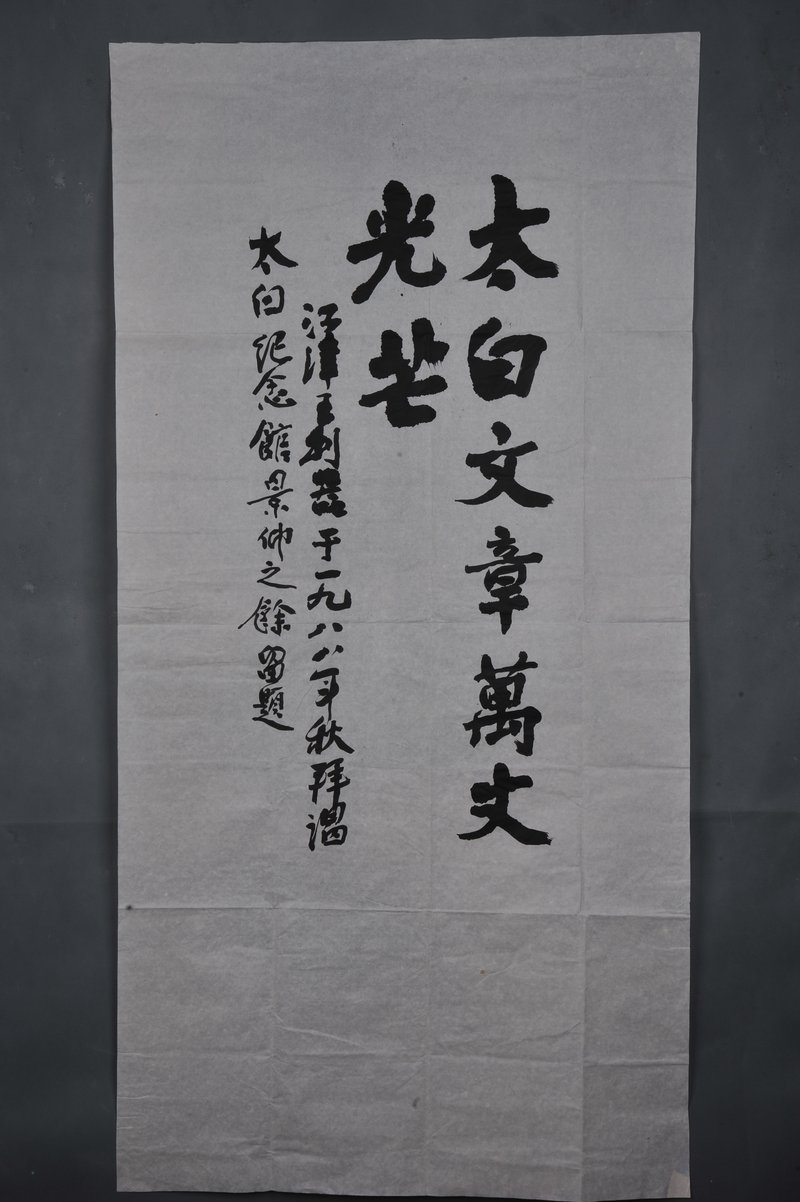 太白文章萬丈
光芒
江津王利器于一九八八年秋拜謁
太白纪念館景仰之餘留題